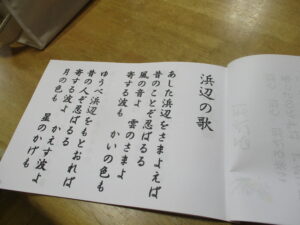 浜辺の歌
あした浜辺をさまよえば
昔のことぞ忍ばるる
風の音よ 雲のさまよ
寄する波も かいの色も
ゆうべ浜辺をもとおれば
昔の人ぞ忍ばるる
寄する波よ かえす波よ
月の色も 星のかげも